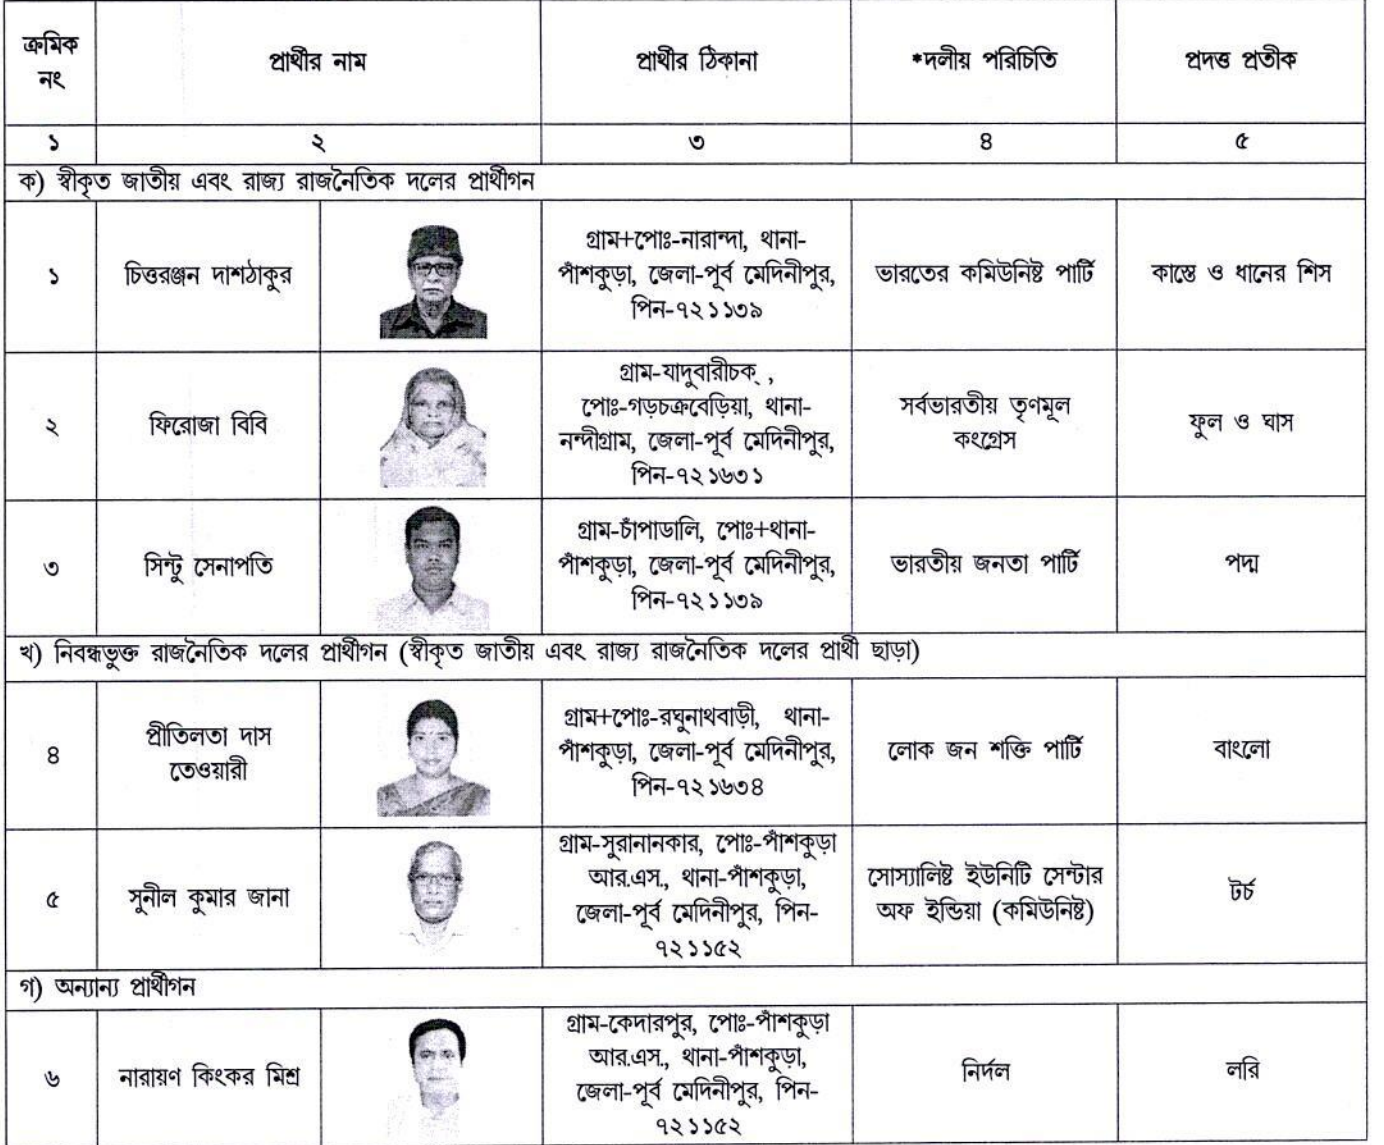 ক্রমিক নং
প্রার্থীর নাম
প্রার্থীর ঠিকানা
*দলীয় পরিচিতি
প্রদত্ত প্রতীক
১
২
৩
৪
৫
ক) স্বীকৃত জাতীয় এবং রাজ্য রাজনৈতিক দলের প্রার্থীগন
১
চিত্তরঞ্জন দাশঠাকুর
গ্রাম+পোঃ-নারান্দা, থানা-
পাঁশকুড়া, জেলা-পূর্ব মেদিনীপুর,
পিন-৭২১১৩৯
ভারতের কমিউনিষ্ট পার্টি
কাস্তে ও ধানের শিস
২
ফিরোজা বিবি
গ্রাম-যাদুবারীচক্ ,
পোঃ-গড়চক্রবেড়িয়া, থানা-
নন্দীগ্রাম, জেলা-পূর্ব মেদিনীপুর,
পিন-৭২১৬৩১
সর্বভারতীয় তৃণমূল
কংগ্রেস
ফুল ও ঘাস
৩
সিন্টু সেনাপতি
গ্রাম-চাঁপাডালি, পোঃ+থানা-
পাঁশকুড়া, জেলা-পূর্ব মেদিনীপুর,
পিন-৭২১১৩৯
ভারতীয় জনতা পার্টি
পদ্ম
খ) নিবন্ধভুক্ত রাজনৈতিক দলের প্রার্থীগন (স্বীকৃত জাতীয় এবং রাজ্য রাজনৈতিক দলের প্রার্থী ছাড়া)
৪
প্রীতিলতা দাস
তেওয়ারী
গ্রাম+পোঃ-রঘুনাথবাড়ী, থানা-
পাঁশকুড়া, জেলা-পূর্ব মেদিনীপুর,
পিন-৭২১৬৩৪
লোক জন শক্তি পার্টি
বাংলো
৫
সুনীল কুমার জানা
গ্রাম-সুরানানকার, পোঃ-পাঁশকুড়া
আর.এস., থানা-পাঁশকুড়া,
জেলা-পূর্ব মেদিনীপুর, পিন-
৭২১১৫২
সোস্যালিষ্ট ইউনিটি সেন্টার
অফ ইন্ডিয়া (কমিউনিষ্ট)
টর্চ
গ) অন্যান্য প্রার্থীগন
৬
নারায়ণ কিংকর মিশ্র
গ্রাম-কেদারপুর, পোঃ-পাঁশকুড়া
আর.এস., থানা-পাঁশকুড়া,
জেলা-পূর্ব মেদিনীপুর, পিন-
৭২১১৫২
নির্দল
লরি